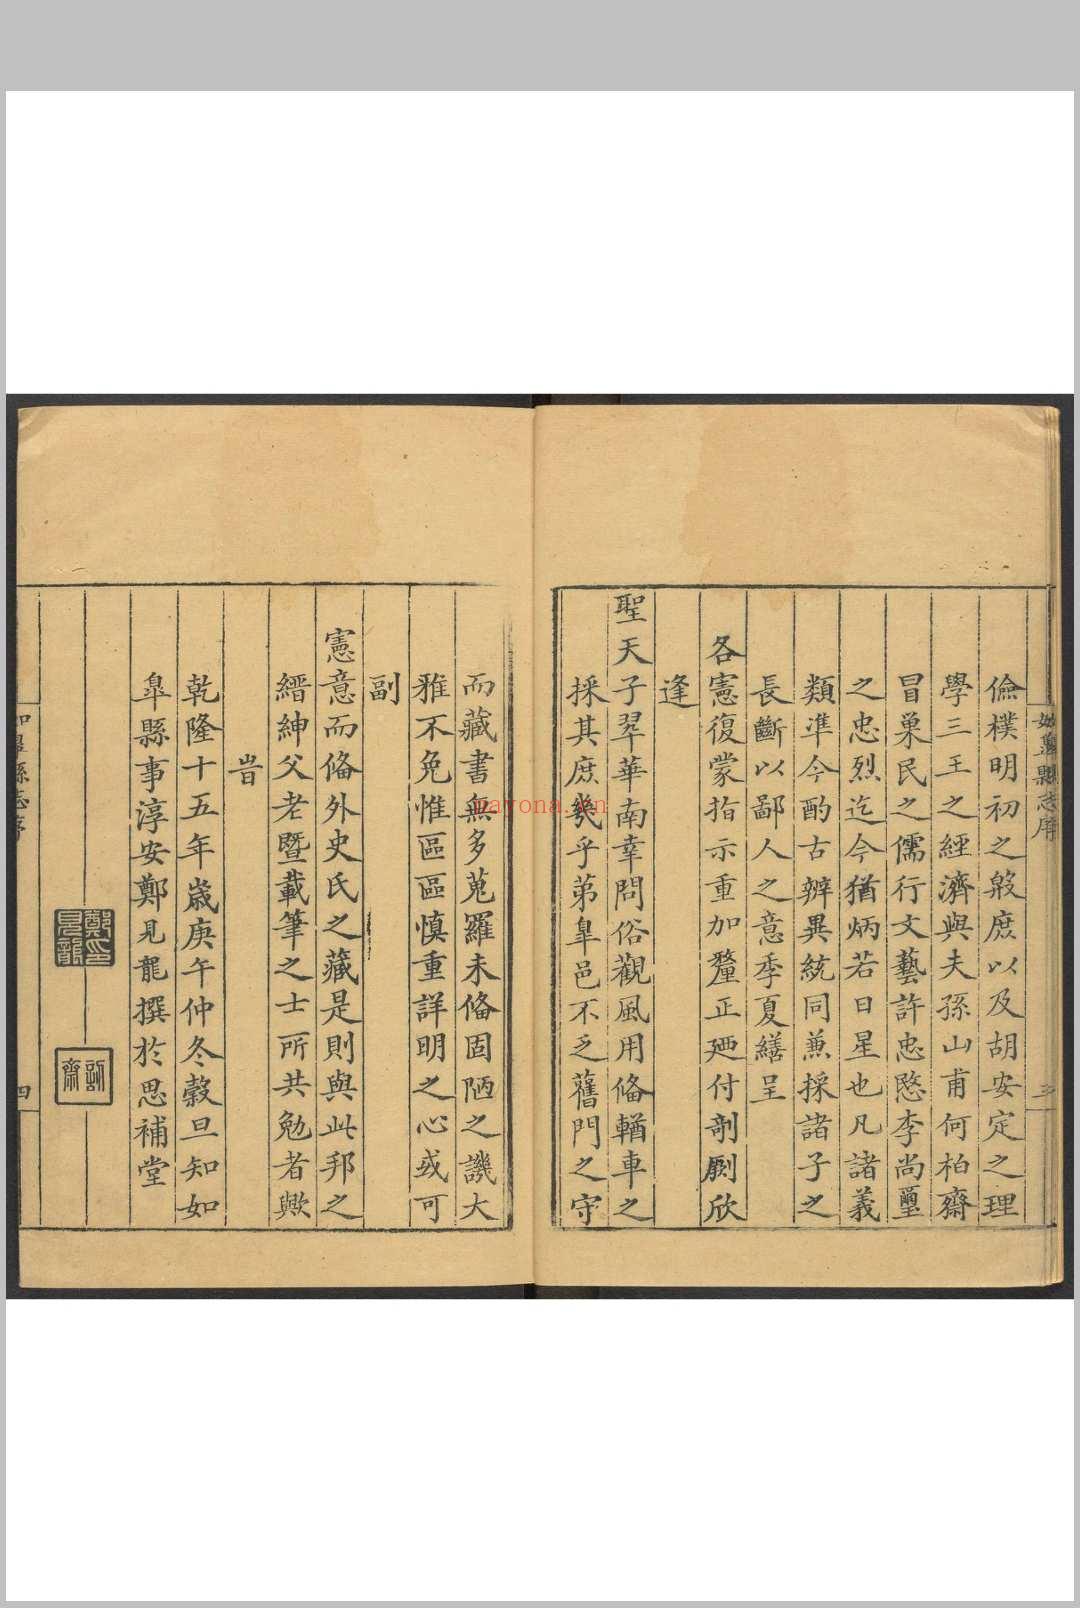 如皋縣志序
三
儉樸明初之殷庶以及胡安定之理
學三王之經濟與夫孫山甫何柏齋
冒巢民之儒行文藝許忠愍李尚璽
之忠烈迄今猶炳若日星也凡諸義
類凖今酌古辨異統同兼採諸子之
長斷以鄙人之意季夏繕呈
各憲復蒙指示重加釐正廼付剞劂欣
逢
聖天子翠華南幸問俗觀風用俻輶車之
採其庶幾乎第皐邑不乏舊門之守
而藏書無多蒐羅未俻固陋之譏大
雅不免惟區區慎重詳明之心或可
副
憲意而俻外史氏之藏是則與此邦之
縉紳父老暨載筆之士所共勉者歟
旹
乾隆十五年歲庚午仲冬穀旦知如
臯縣事淳安鄭見龍撰於思補堂
鄭印見龍
訒齋
如皋縣志序
四
nayona.cn